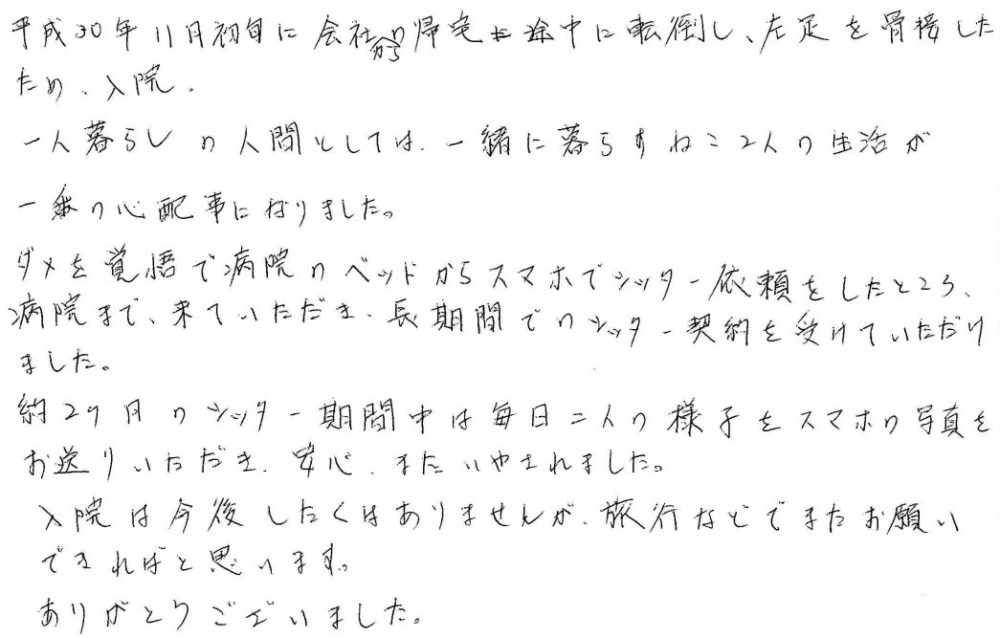 平成30年11月初旬に会社からの帰宅途中に転倒し、左足を骨接した
ため、入院、
一人暮らしの人間としては、一緒に暮らすねこ2人の生活が
一番の心配事になりました。
ダメを覚悟で病院のベッドからスマホでシッター依頼をしたところ、
病院まで、来ていただき、長期間でのシッター契約を受けていただけ
ました。
約2ケ月のシッター期間中は毎日二人の様子をスマホの写真を
お送りいただき、安心、またいやされました。
入院は今後したくはありませんが、旅行などでまたお願い
できればと思います。
ありがとうございました。